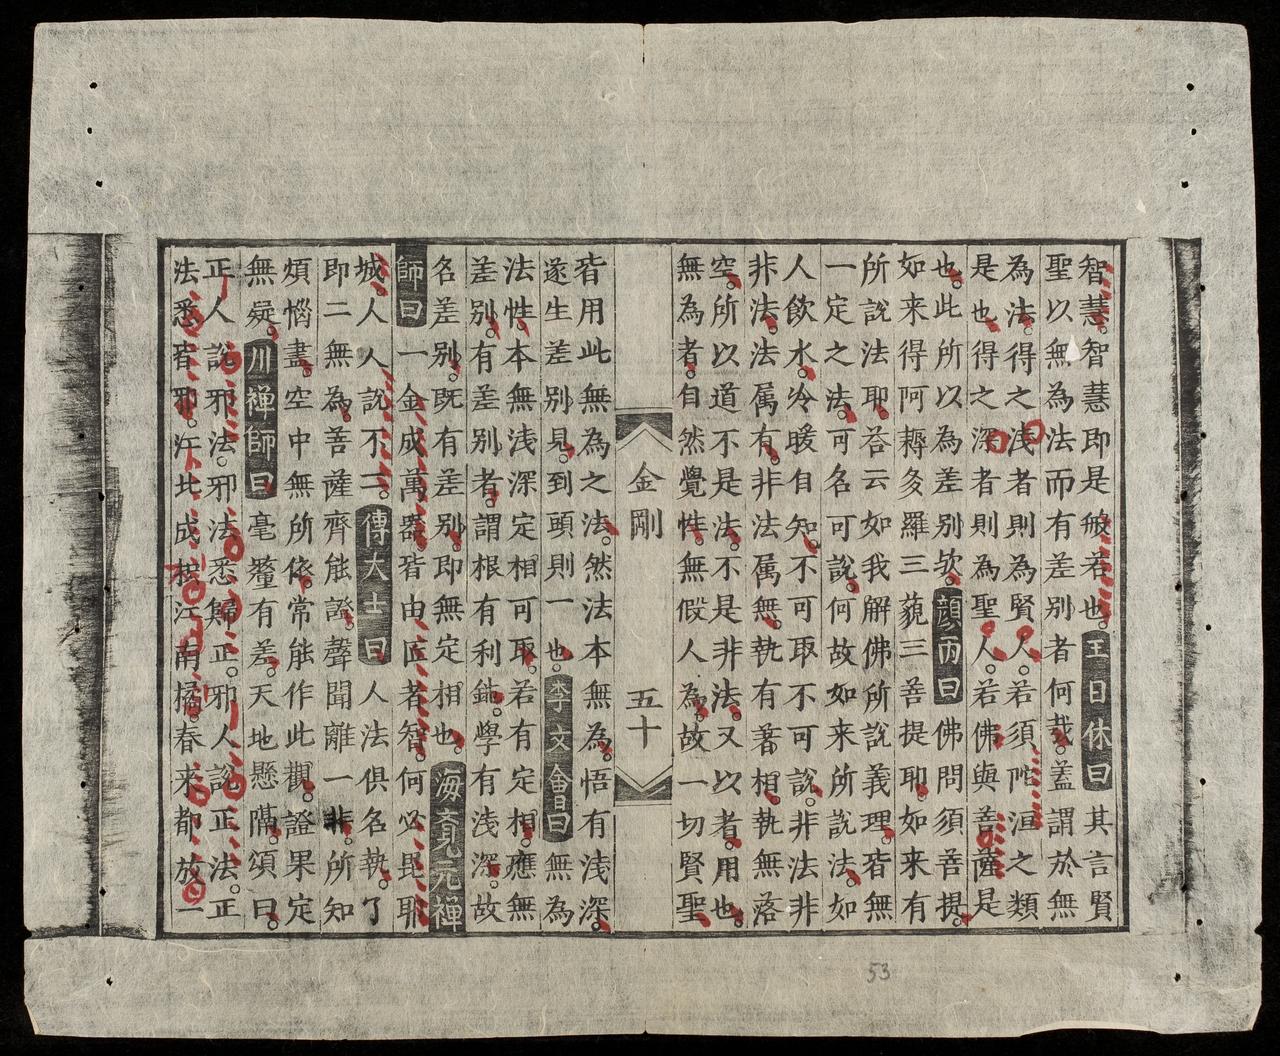 智慧。智慧即是般若也。王日休曰其言賢
聖以無為法而有差別者何哉。蓋謂於無
為法。得之浅者則為賢人。若須陀洹之類
是也。得之深者則為聖人。若佛與菩薩是
也。此所以為差別欤。顔丙曰佛問須菩提。
如来得阿耨多羅三藐三菩提耶。如来有
所說法耶。荅云如我解佛所說義理。皆無
一定之法。可名可說。何故如来所說法。如
人飲水。冷暖自知。不可取不可說。非法非
非法。法属有。非法属無。執有著相。執無落
空。所以道不是法。不是非法。又以者。用也。
無為者。自然覺性。無假人為。故一切賢聖
金剛
五十
皆用此無為之法。然法本無為。悟有浅深。
遂生差別見。到頭則一也。李文會曰無為
法性。本無浅深定相可取。若有定相。應無
差別。有差別者。謂根有利鈍。學有浅深。故
名差別。既有差別。即無定相也。海覔元禅
師曰一金成萬器。皆由匠者智。何必毘耶
城。人人說不二。傅大士曰人法俱名執。了
即二無為。菩薩齊能證。聲聞離一非。所知
煩惱盡。空中無所依。常能作此觀。證果定
無疑。川禅師曰毫釐有差。天地懸隔。頌曰。
正人說邪法。邪法悉歸正。邪人說正法。正
法悉皆邪。江北成枳江南橘。春来都放一
53